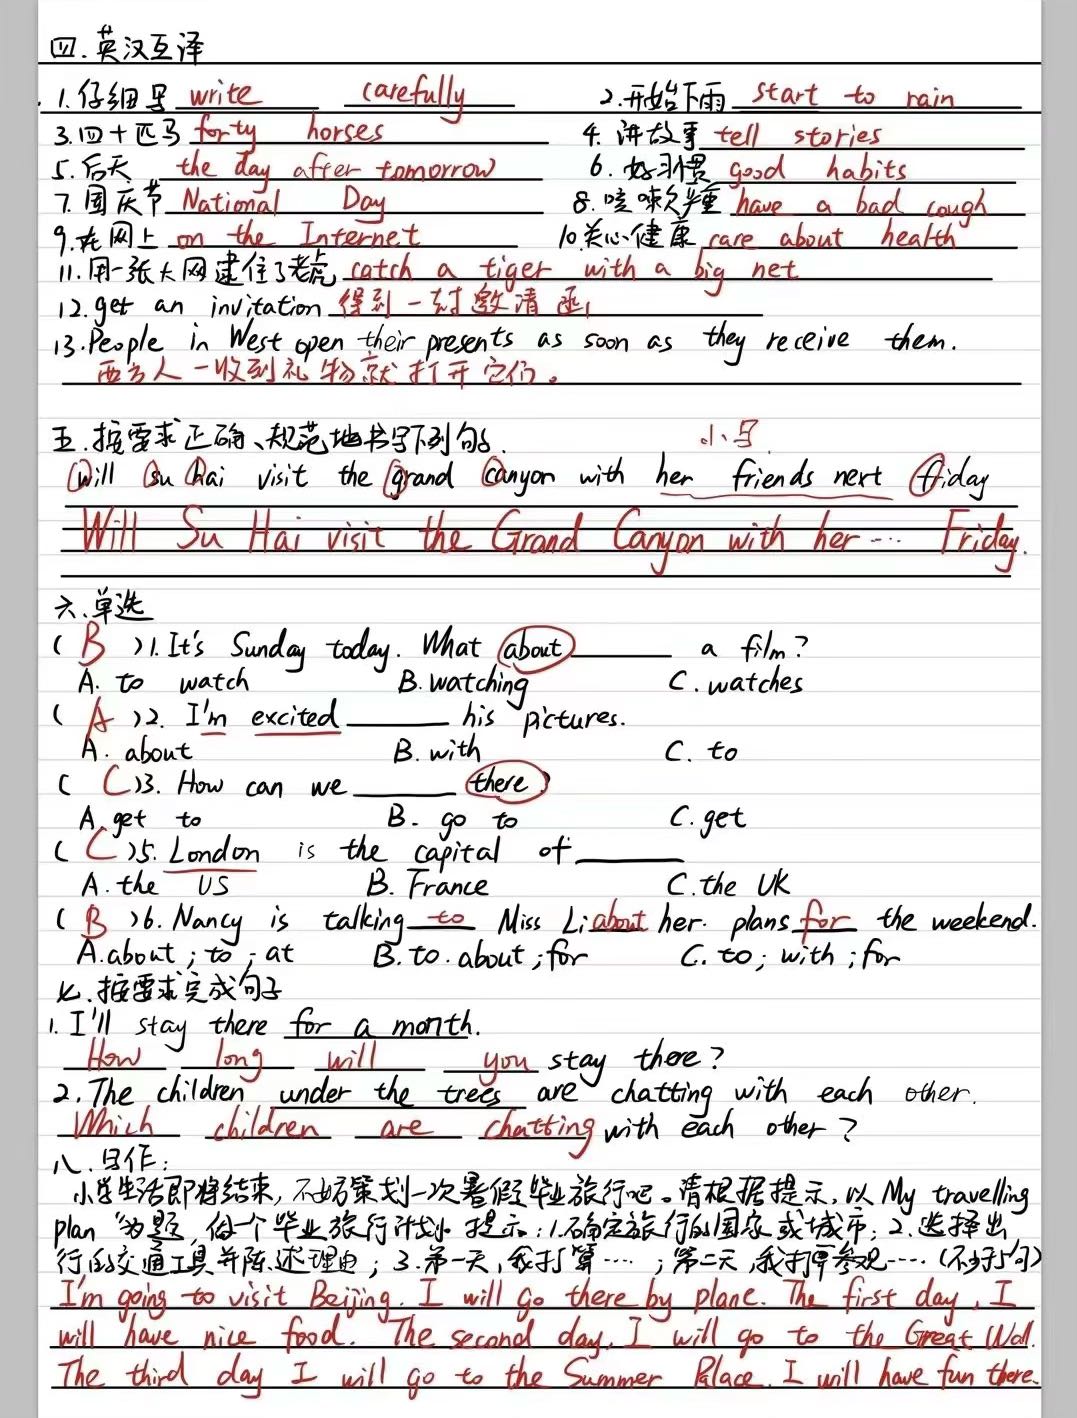 四.英汉互译
1.仔细写 write carefully 2.开始下雨 start to rain
3.四十匹马 forty horses 4.讲故事 tell stories
5.后天 the day after tomorrow 6.好习惯 good habits
7.国庆节 National Day 8.咳嗽严重 have a bad cough
9.在网上 on the Internet 10.关心健康 care about health
11.用一张大网逮住了老虎 catch a tiger with a big net
12.get an invitation 得到一封邀请函
13.People in West open their presents as soon as they receive them.
西方人一收到礼物就打开它们。
五.按要求正确、规范地书写下列句子. 小写
will su hai visit the grand canyon with her friends next friday
Will Su Hai visit the Grand Canyon with her ... Friday.
六.单选
( B )1.It's Sunday today. What about ______ a film?
A. to watch B.watching C.watches
( A )2. I'm excited ______ his pictures.
A. about B.with C. to
( C )3. How can we ______ there?
A.get to B. go to C.get
( C )5. London is the capital of ______
A.the US B. France C.the UK
( B )6. Nancy is talking to Miss Li about her plans for the weekend.
A.about ; to ; at B.to. about ; for C. to ; with ; for
七.按要求完成句子
1. I'll stay there for a month.
How long will you stay there?
2.The children under the trees are chatting with each other.
Which children are chatting with each other?
八.写作:
小学生活即将结束,不妨策划一次暑假毕业旅行吧。请根据提示,以My travelling
plan"为题,做一个毕业旅行计划。提示:1.确定旅行的国家或城市;2.选择出
行的交通工具并陈述理由;3.第一天,我打算……;第二天,我打算参观……(不少于5句)
I'm going to visit Beijing. I will go there by plane. The first day, I
will have nice food. The second day, I will go to the Great Wall.
The third day I will go to the Summer Palace. I will have fun there.